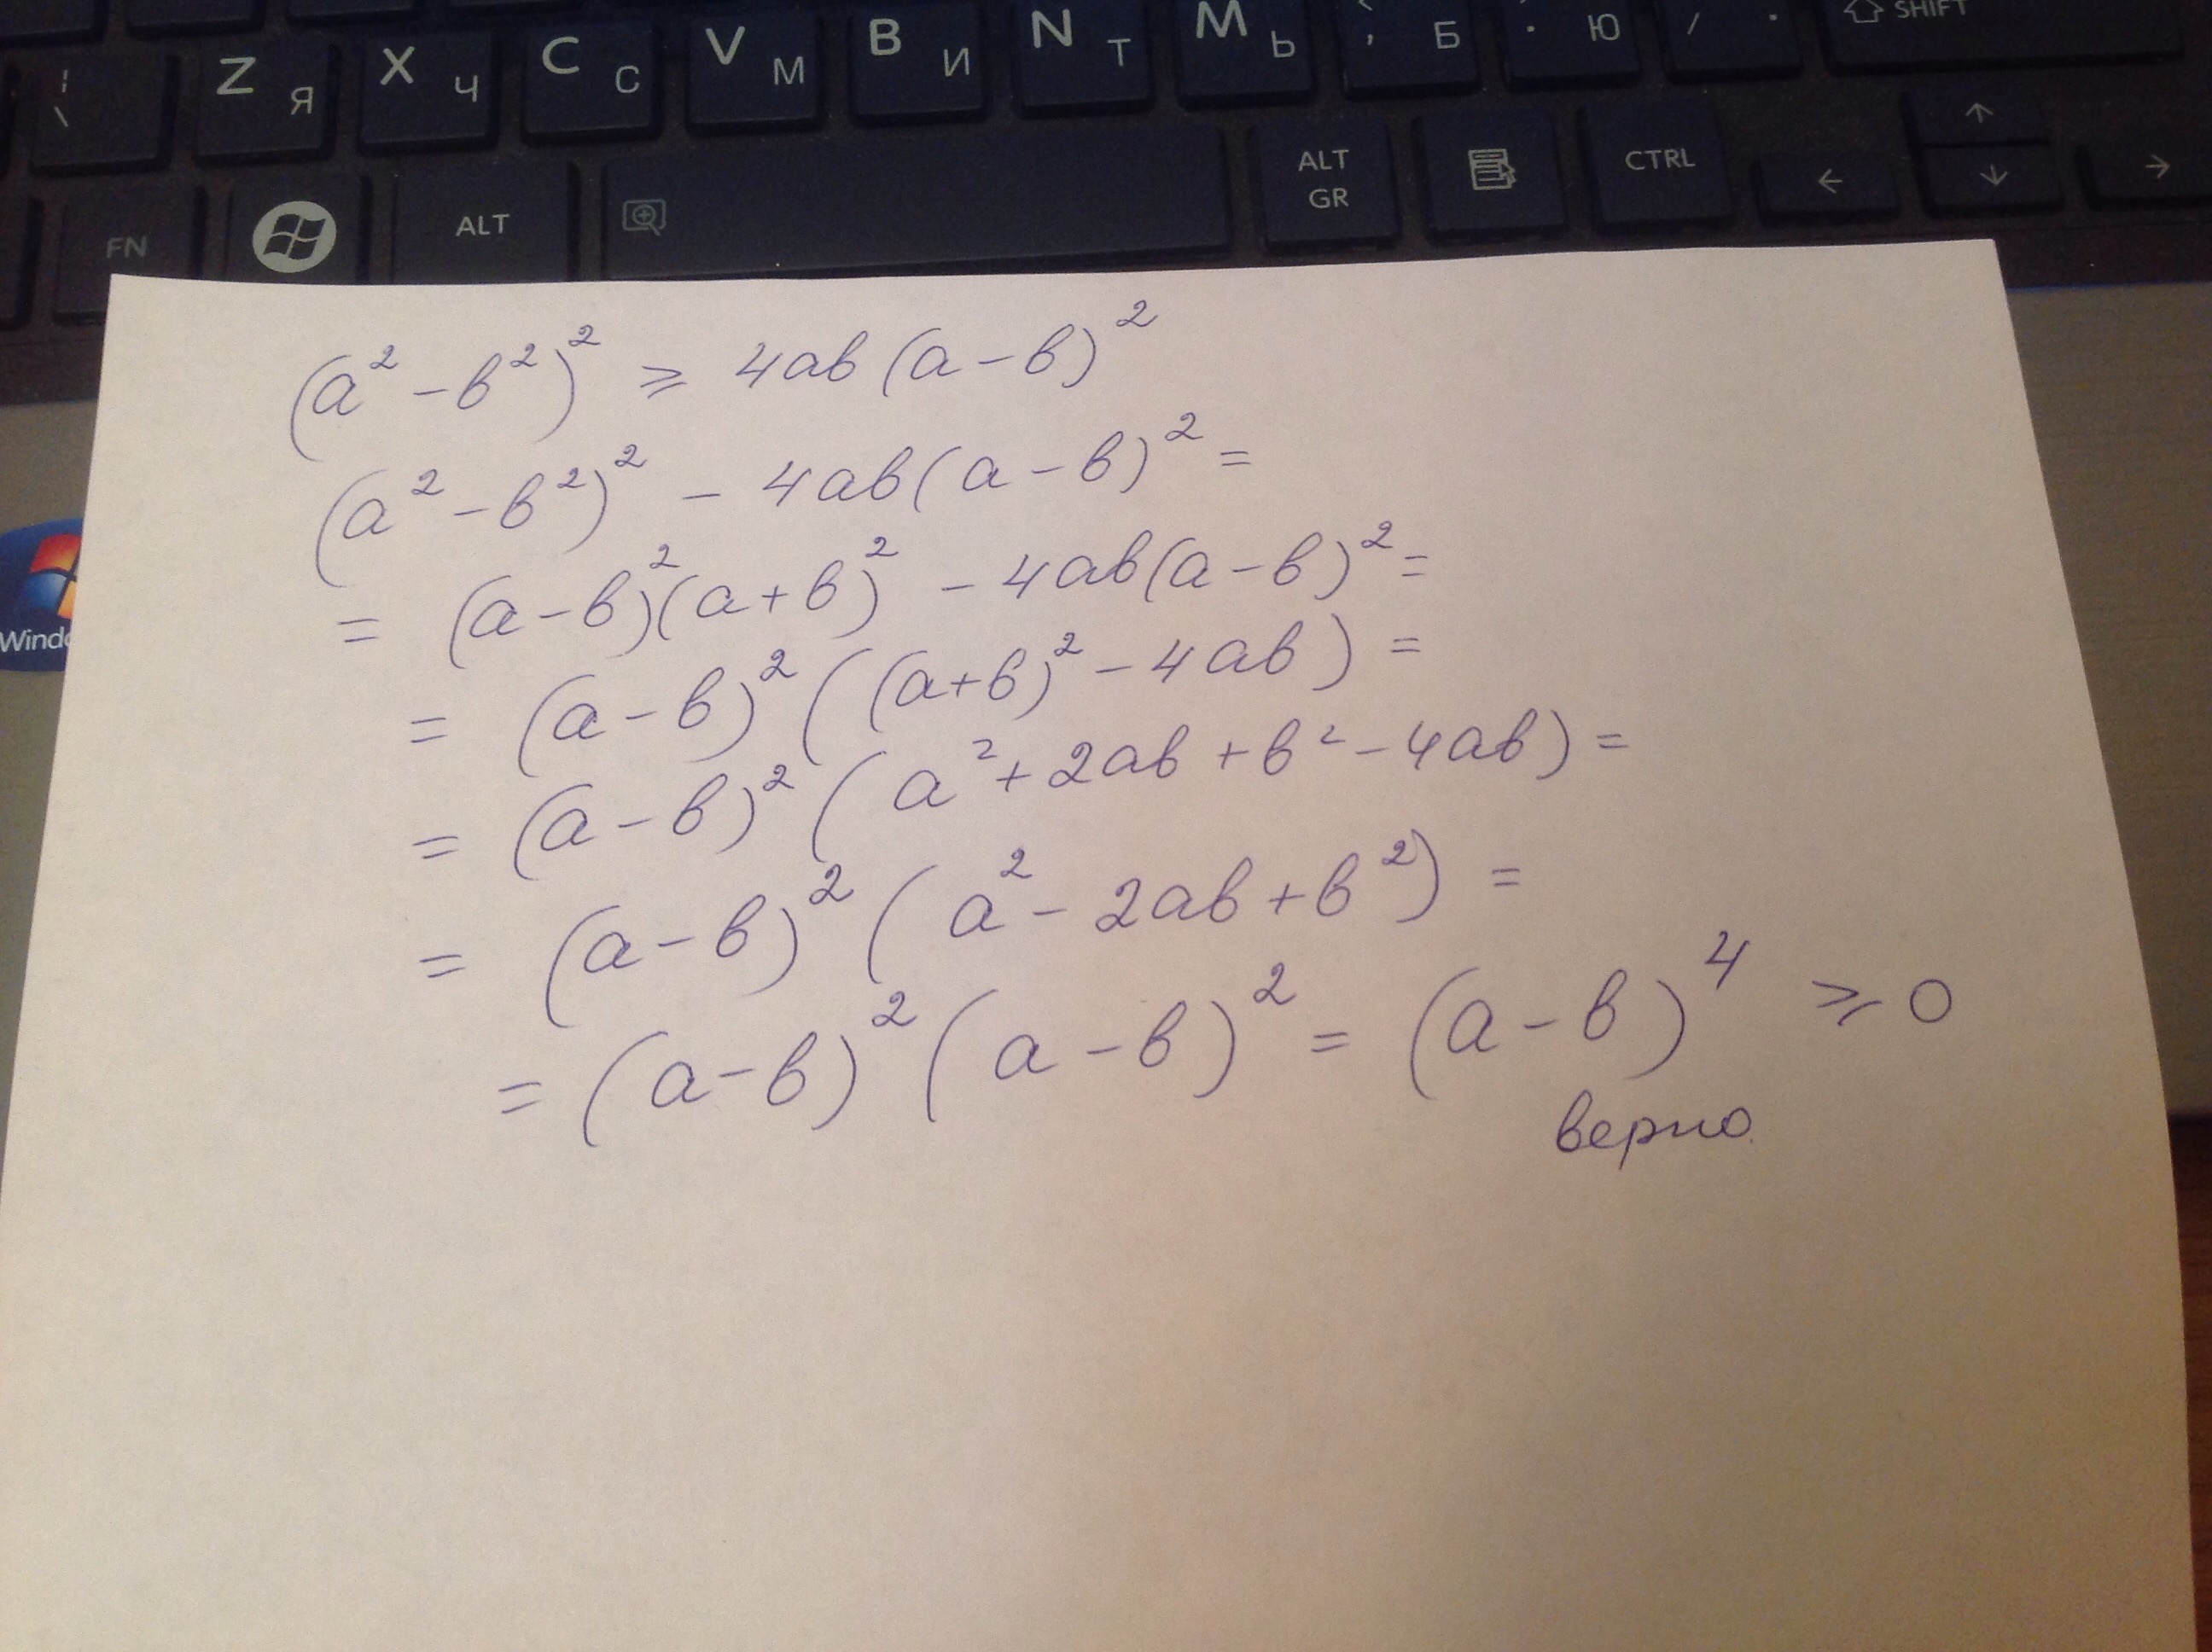 \ Z Я X Ч C С V М B И N Т M Ь , Б . Ю / . SHIFT
FN ALT ALT GR CTRL
(a² - b²)² ⩾ 4ab(a - b)²
(a² - b²)² - 4ab(a - b)² =
= (a - b)²(a + b)² - 4ab(a - b)² =
= (a - b)²((a + b)² - 4ab) =
= (a - b)²(a² + 2ab + b² - 4ab) =
= (a - b)²(a² - 2ab + b²) =
= (a - b)²(a - b)² = (a - b)⁴ ⩾ 0
верно.